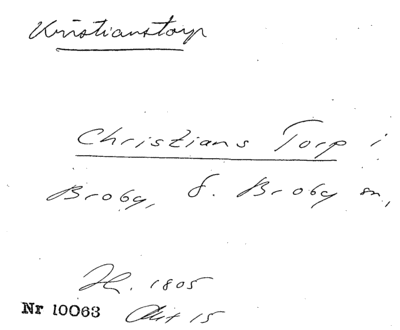 Kristianstorp
Christians Torp i
Broby, Ö. Broby sn,
Hl. 1805
Nr 10063 Akt 15